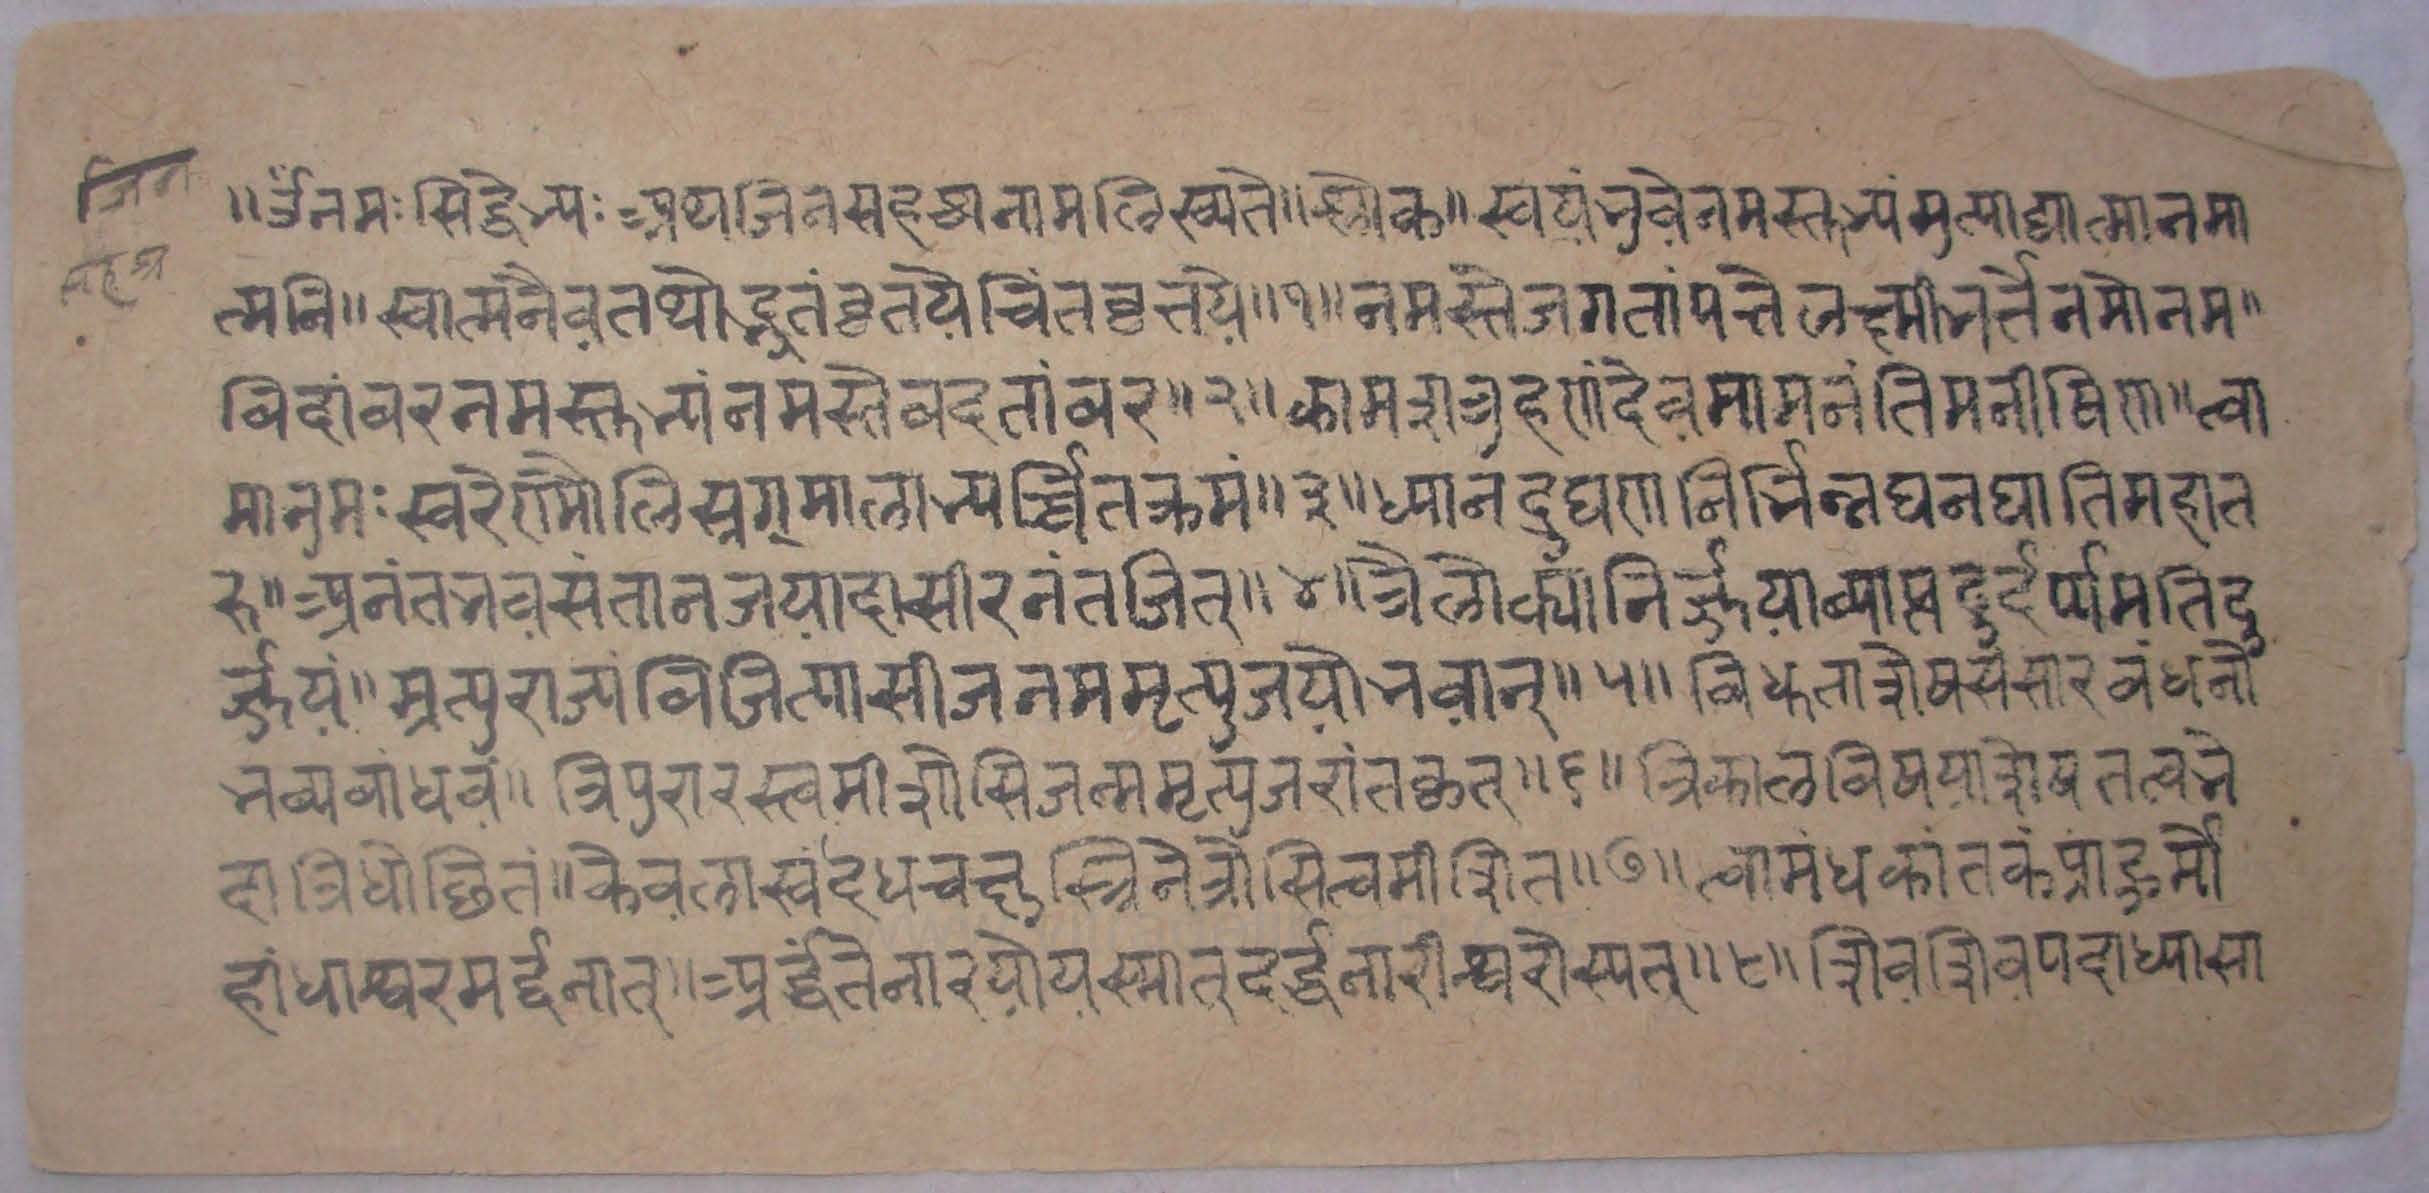 जिन
सहश्र
॥ॐनमःसिद्धेभ्यःअथजिनसहश्रनामलिख्यते॥श्लोक॥स्वयंभुवेनमस्तुभ्यंमुत्पाद्यात्मानमा
त्मनि॥स्वात्मनैवतथोद्भुतंवृतयेचिंतवृत्तये॥१॥नमस्तेजगतांपत्तेलक्ष्मीभर्त्तेनमोनम॥
विदांवरनमस्तुभ्यंनमस्तेवदतांवर॥२॥कामशत्रुहणंदेवमामनंतिमनीषिणा॥त्वा
मानुमःस्वरेणमौलिस्रग्मालाभ्यर्च्चितक्रमं॥३॥ध्यानंद्रुघणानिर्भिन्नघनघातिमहात
रु॥अनंतभवसंतानजयादासीरनंतजित्॥४॥त्रैलोक्यांनिर्ज्जयाव्याप्तदुर्द्दर्प्पमतिदु
र्ज्जयं॥म्रत्युराज्यंविजित्यासीजनममृत्युजयोभवान्॥५॥विधुताशेषसंसारबंधनो
भव्यबांधवं॥त्रिपुरारस्त्वमीशोसिजत्ममृर्त्युजरांतकृत्॥६॥त्रिकालविषयाशेषतत्वभे
दात्रिधोछितं॥केवलास्वंदधचक्षुस्त्रिनेत्रोसित्वमीशित॥७॥त्वामंधकांतकंप्राहुर्मो
हांधाश्वरमर्द्दनात्॥अर्द्धंतेनारयोयस्मात्दर्द्धनारीश्वरोस्यत्॥८॥शिवशिवपदाध्यासा